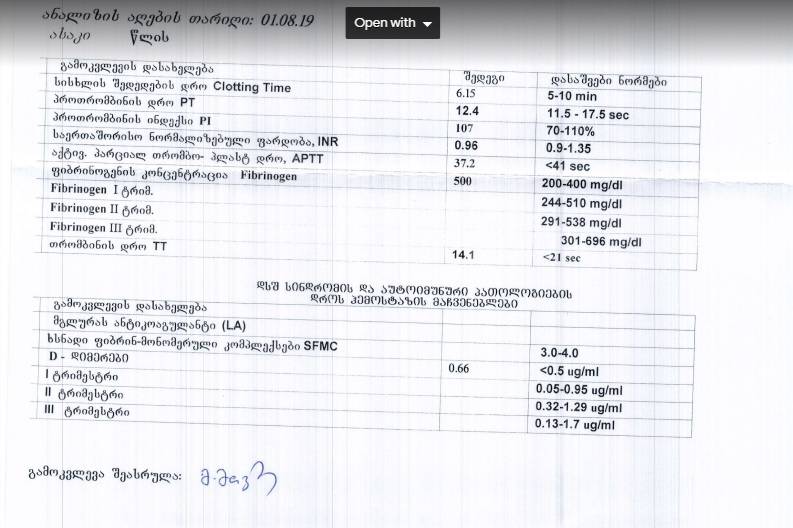 ანალიზის აღების თარიღი: 01.08.19
Open with
ასაკი წლის
გამოკვლევის დასახელება შედეგი დასაშვები ნორმები
სისხლის შედედების დრო Clotting Time 6.15 5-10 min
პროთრომბინის დრო PT 12.4 11.5 - 17.5 sec
პროთრომბინის ინდექსი PI 107 70-110%
საერთაშორისო ნორმალიზებული ფარდობა, INR 0.96 0.9-1.35
აქტივ. პარციალ თრომბო- პლასტ დრო, APTT 37.2 <41 sec
ფიბრინოგენის კონცენტრაცია Fibrinogen 500 200-400 mg/dl
Fibrinogen I ტრიმ. 244-510 mg/dl
Fibrinogen II ტრიმ. 291-538 mg/dl
Fibrinogen III ტრიმ. 301-696 mg/dl
თრომბინის დრო TT 14.1 <21 sec
დსშ სინდრომის და აუტოიმუნური პათოლოგიების
დროს ჰემოსტაზის მაჩვენებლები
გამოკვლევის დასახელება
მგლურას ანტიკოაგულანტი (LA)
ხსნადი ფიბრინ-მონომერული კომპლექსები SFMC 3.0-4.0
D - დიმერები 0.66 <0.5 ug/ml
I ტრიმესტრი 0.05-0.95 ug/ml
II ტრიმესტრი 0.32-1.29 ug/ml
III ტრიმესტრი 0.13-1.7 ug/ml
გამოკვლევა შეასრულა: